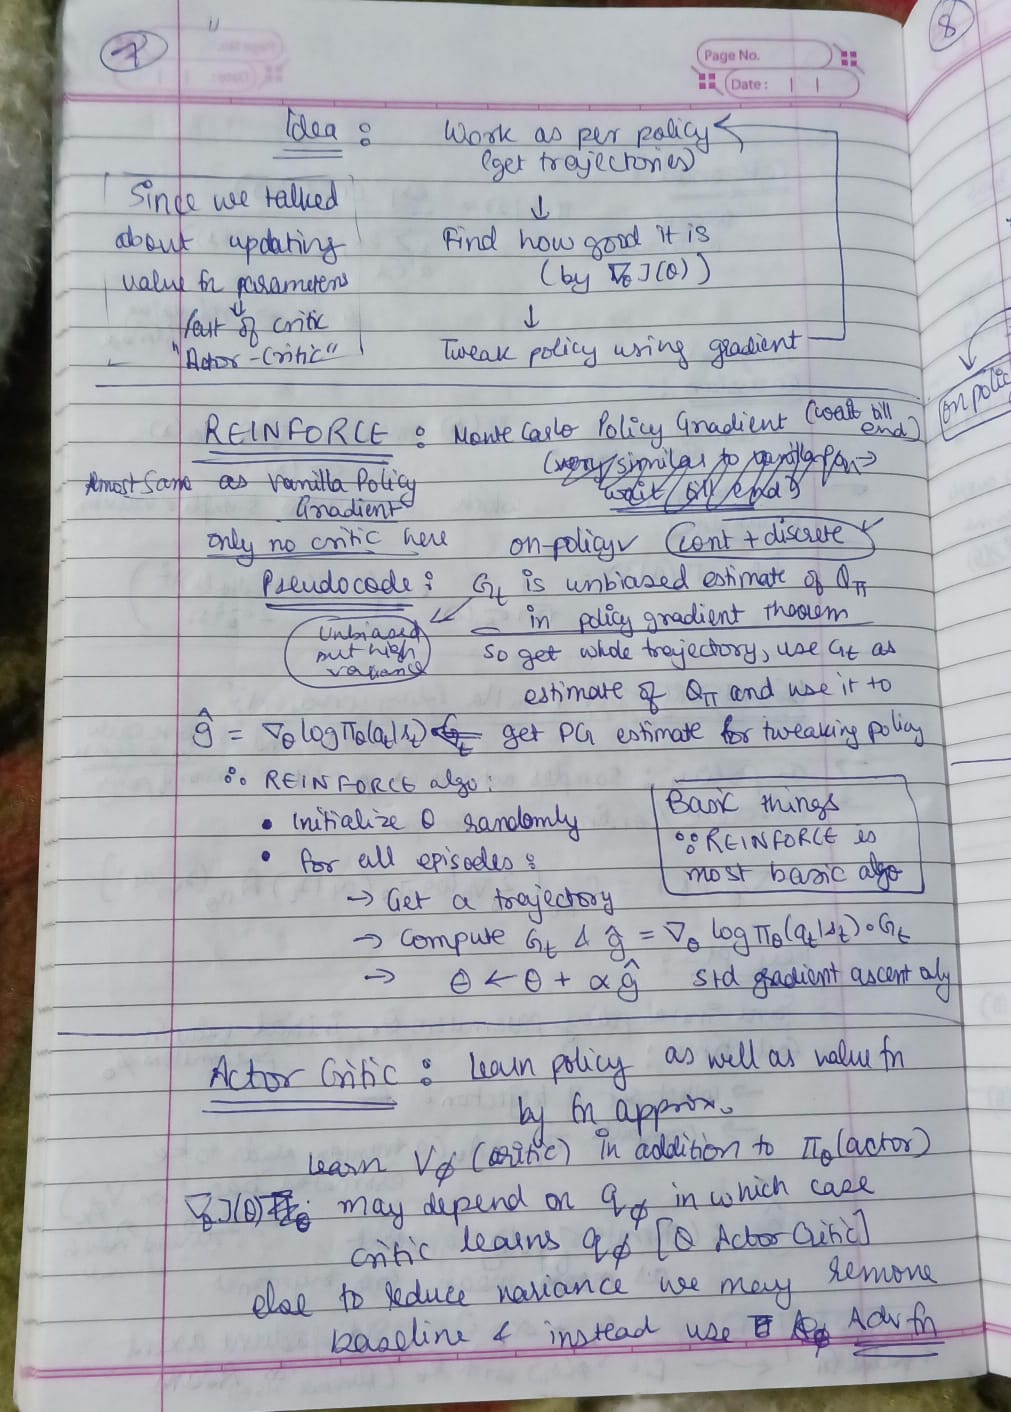 7
Page No.
Date :
8
Idea : Work as per policy
(get trajectories)
↓
Find how good it is
(by ∇θ J(θ))
↓
Tweak policy using gradient
Since we talked
about updating
value fn parameters
↓
Part of critic
"Actor-Critic"
on polic
REINFORCE : Monte Carlo Policy Gradient (wait till
end)
(very similar to vanilla fn →
wait till end)
Almost Same as Vanilla Policy
Gradient
only no critic here on-policy✓ cont + discrete
Pseudocode : Gt is unbiased estimate of Qπ
in policy gradient theorem
Unbiased
but high
variance
so get whole trajectory, use Gt as
estimate of Qπ and use it to
ĝ = ∇θ log πθ(at|st) Gt get PG estimate for tweaking policy
∴ REINFORCE algo:
• Initialize θ randomly
• for all episodes :
→ Get a trajectory
→ Compute Gt & ĝ = ∇θ log πθ(at|st) • Gt
→ θ ← θ + αĝ std gradient ascent only
Basic things
∵ REINFORCE is
most basic algo
Actor Critic : Learn policy as well as value fn
by fn approx.
learn Vϕ (critic) in addition to πθ (actor)
∇θ J(θ) may depend on qϕ in which case
critic learns qϕ [Q Actor Critic]
else to reduce variance we may remove
baseline & instead use Adv fn